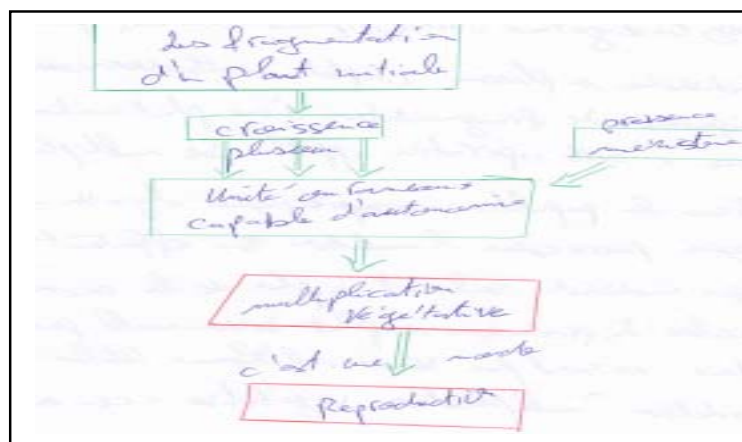 des fragmentation
d'un plant initiale
croissence
plusieur
pressence
méristème
Unité ou rameaux
capable d'autonomie
multiplication
végétative
c'est une mode
Reproductive